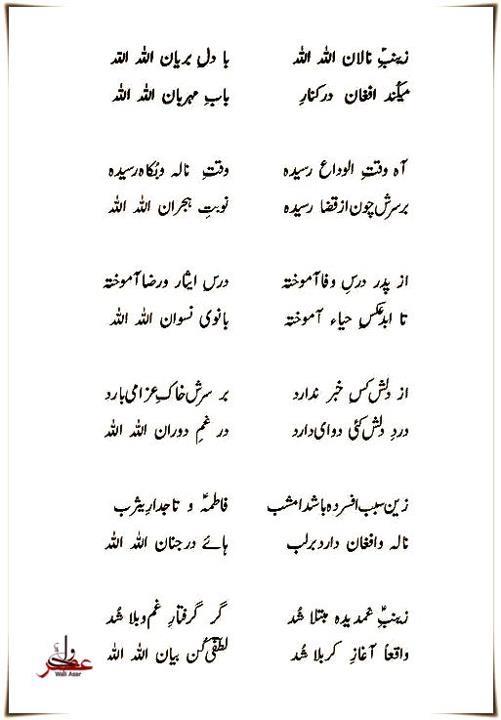 زینبِؑ نالان اللہ اللہ با دلِ بریان اللہ اللہ
میکُند افغان در کنارِ بابِ مہربان اللہ اللہ
آہ وقتِ الوداع رسیدہ وقتِ نالہ و بُکاہ رسیدہ
بر سرش چون از قضا رسیدہ نوبتِ ہجران اللہ اللہ
از پدر درسِ وفا آموختہ درس ایثار و رضا آموختہ
تا ابد عکسِ حیاء آموختہ بانوی نسوان اللہ اللہ
از دلش کس خبر ندارد بر سرش خاکِ عزا می بارد
دردِ دلش کئی دوای دارد در غمِ دوران اللہ اللہ
زین سبب افسردہ باشد امشب فاطمہؑ و تاجدارِ یثرب
نالہ و افغان دارد بر لب ہائے در جنان اللہ اللہ
زینبِؑ غمدیدہ مبتلا شُد گر گرفتارِ غم و بلا شُد
واقعاً آغازِ کربلا شُد لطفؔی کُن بیان اللہ اللہ
ولی عصر
Wali Asar